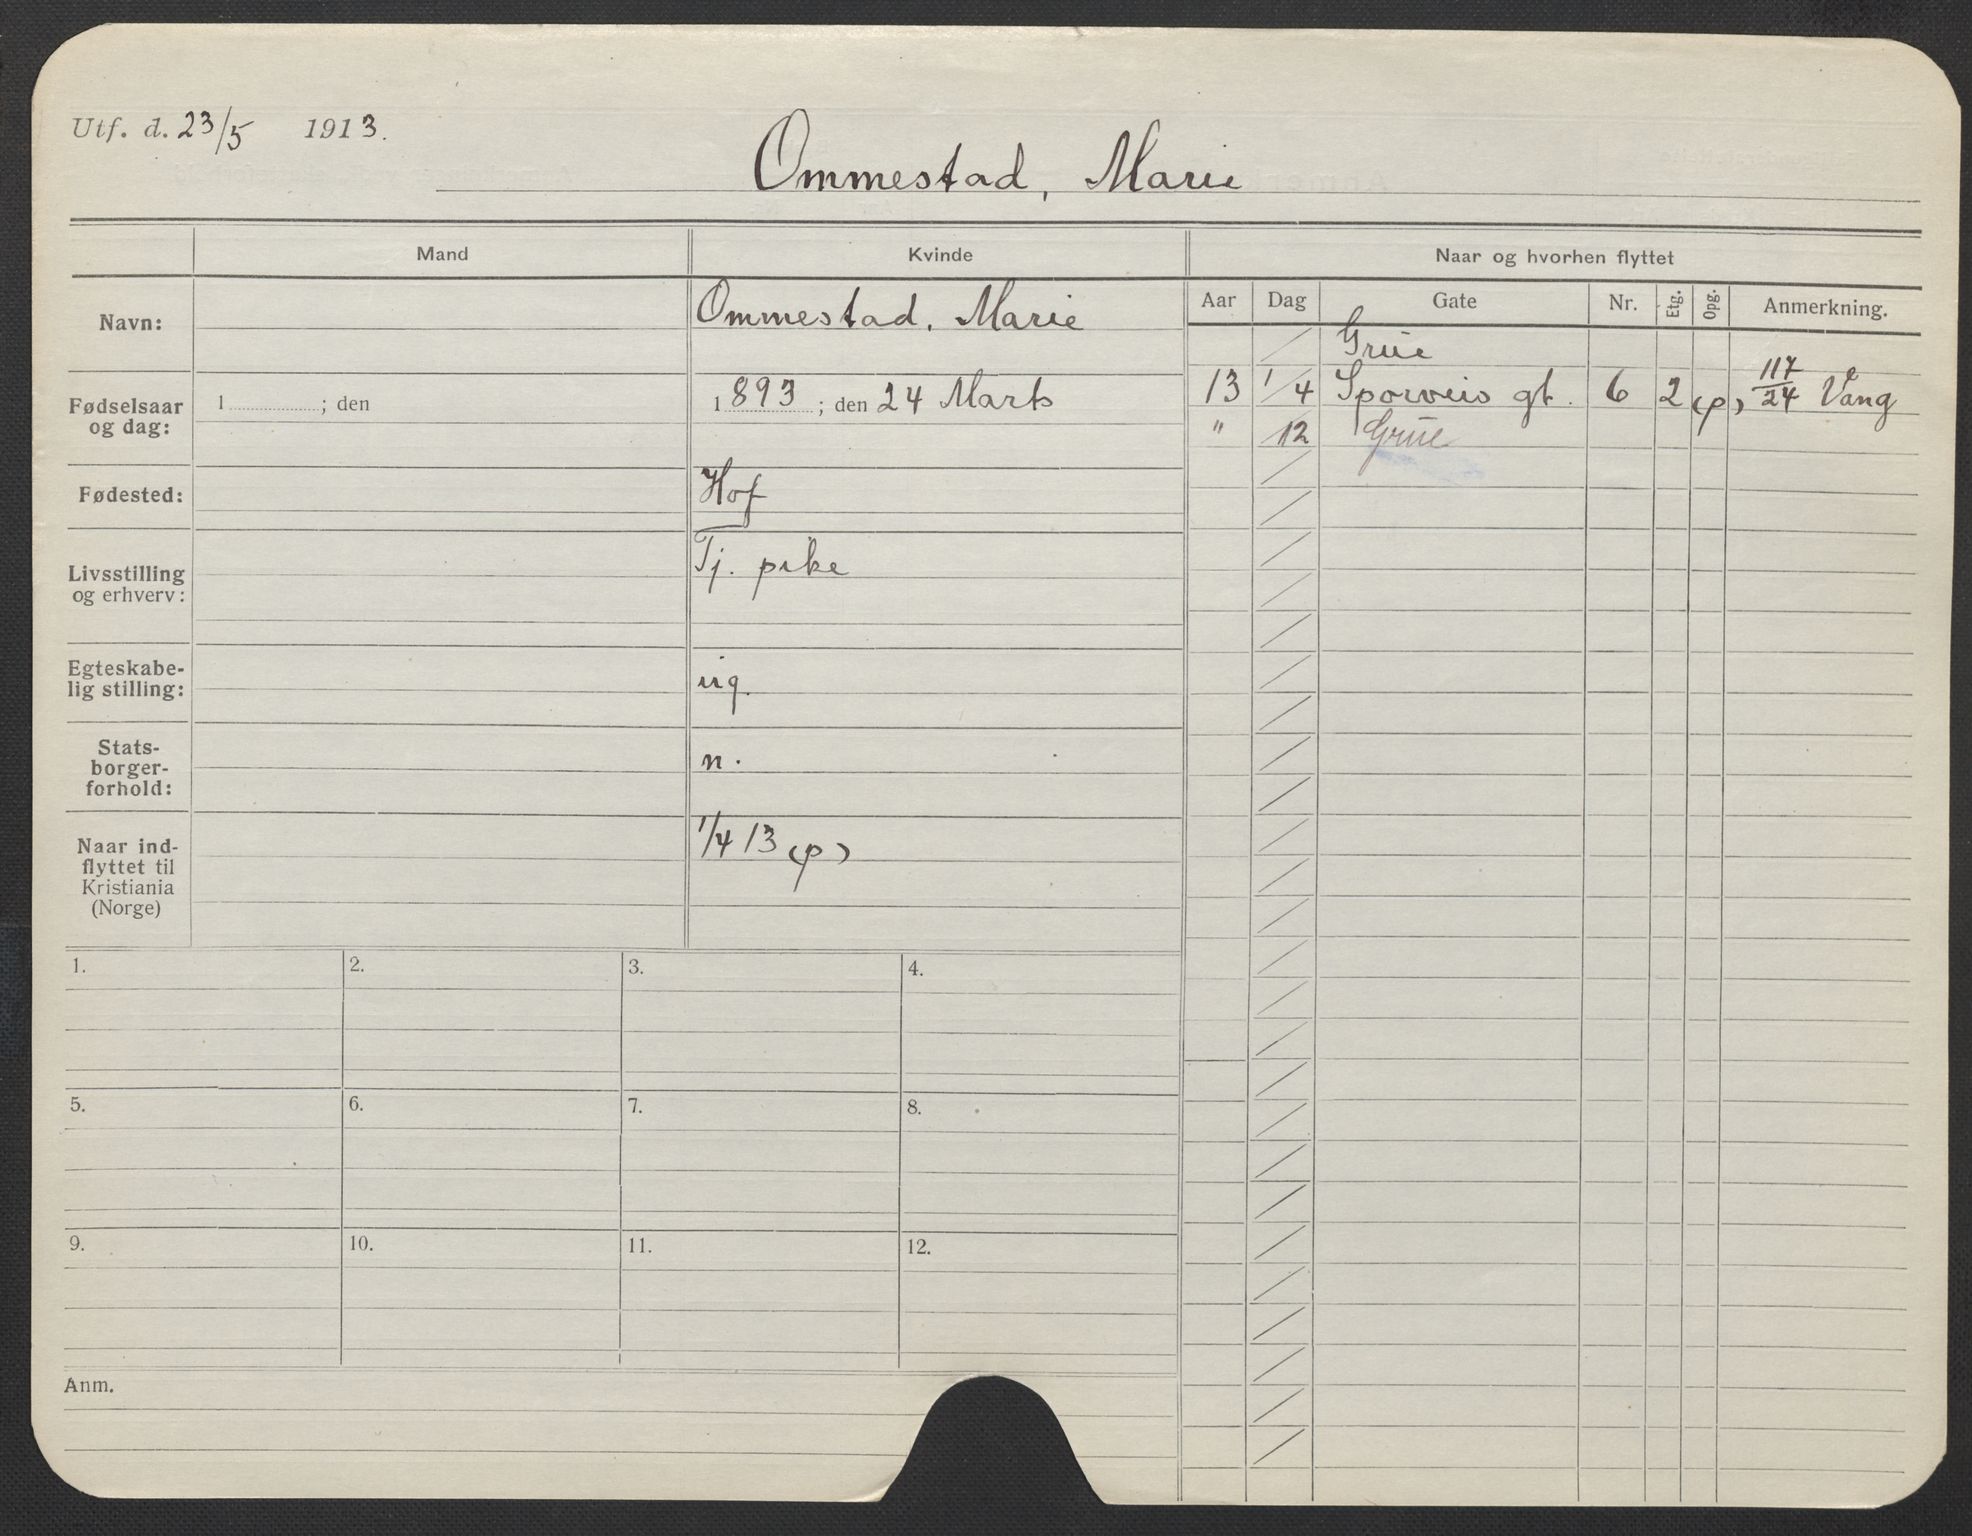 Utf. d. 23/5 1913.
Ommestad, Marie
Mand
Kvinde
Naar og hvorhen flyttet
Navn:
Ommestad, Marie
Fødselsaar og dag:
1 ; den
1893 ; den 24 Marts
Fødested:
Hof
Livsstilling og erhverv:
Tj. pike
Egteskabe-
lig stilling:
ug.
Stats-
borger-
forhold:
n.
Naar ind-
flyttet til
Kristiania
(Norge)
1/4 13 (p)
Aar Dag Gate Nr. Etg. Opg. Anmerkning.
/ Grue
13 1/4 Sporveis gt. 6 2 (p) 117/24 Vang
" 12 Grue
1. 2. 3. 4.
5. 6. 7. 8.
9. 10. 11. 12.
Anm.